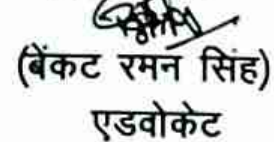 (बेंकट रमन सिंह)
एडवोकेट